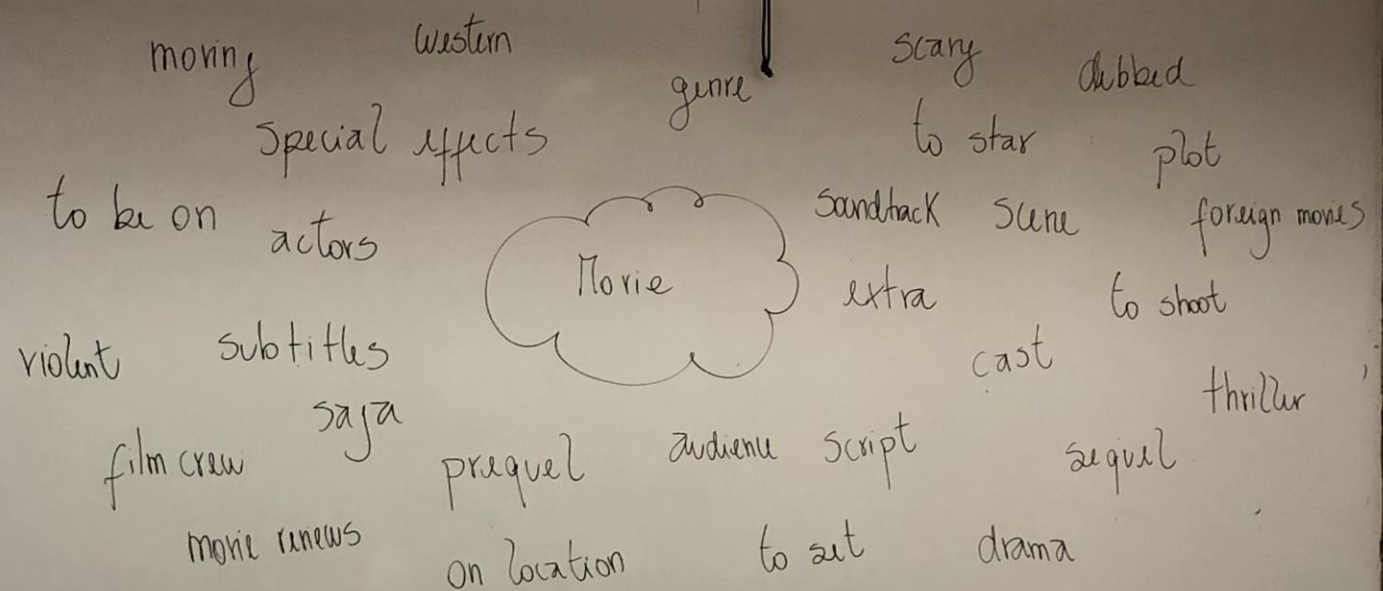 moving
western
genre
scary
dubbed
special effects
to star
plot
to be on
actors
soundtrack
scene
foreign movies
Movie
extra
to shoot
violent
subtitles
cast
thriller
saga
film crew
prequel
audience
script
sequel
movie reviews
on location
to set
drama